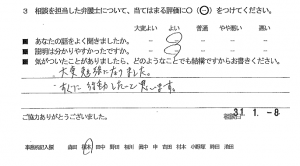 3 相談を担当した弁護士について、当てはまる評価に〇(⊖)をつけてください。
大変よい よい 普通 やや悪い 悪い
■ あなたの話をよく聞きましたか。
■ 説明は分かりやすかったですか。
■ 気がついたことがありましたら、どのようなことでも結構ですからお書きください。
大変勉強になりました。
すぐに行動したいと思います。
ご協力ありがとうございました。
相談日 31. 1. -8
事務局記入欄